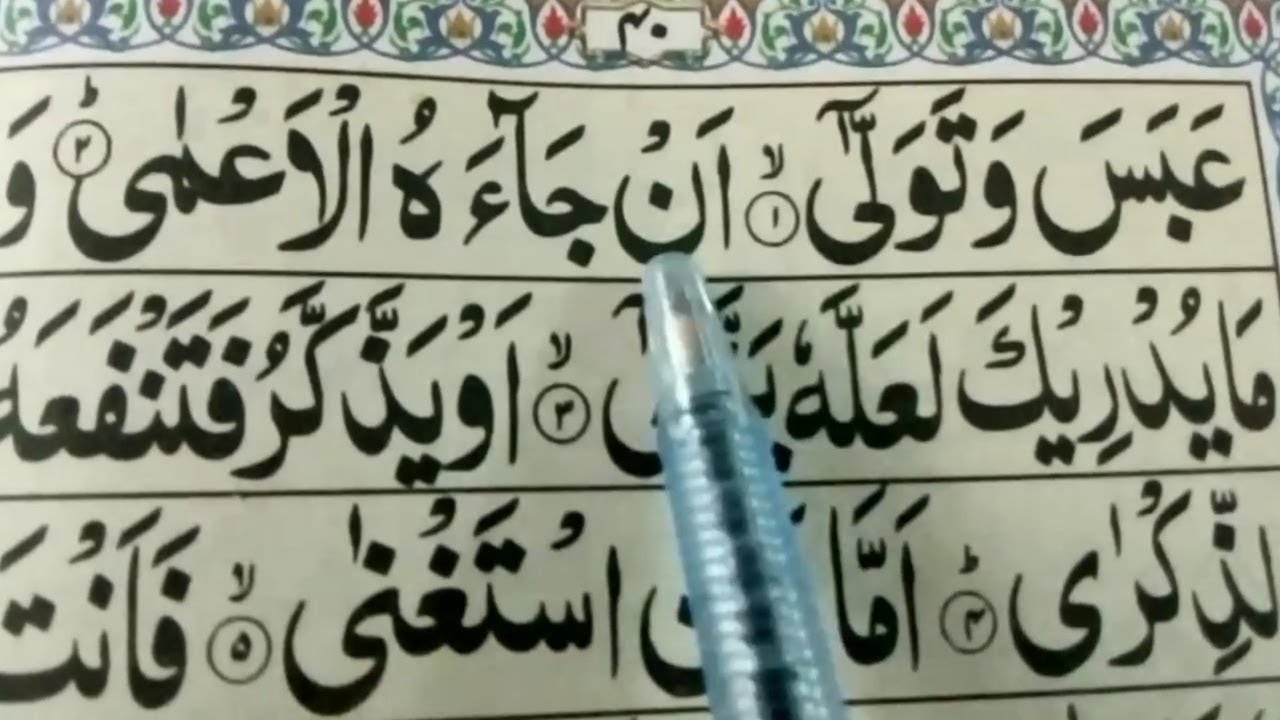 ٤٠
عَبَسَ وَتَوَلّٰٓى ۙ﴿١﴾ اَنْ جَآءَهُ الْاَعْمٰى ؕ﴿٢﴾ وَ
مَا يُدْرِيْكَ لَعَلَّهٗ ۙ﴿٣﴾ اَوْ يَذَّكَّرُ فَتَنْفَعَهُ
الذِّكْرٰى ؕ﴿٤﴾ اَمَّا اسْتَغْنٰى ۙ﴿٥﴾ فَاَنْتَ